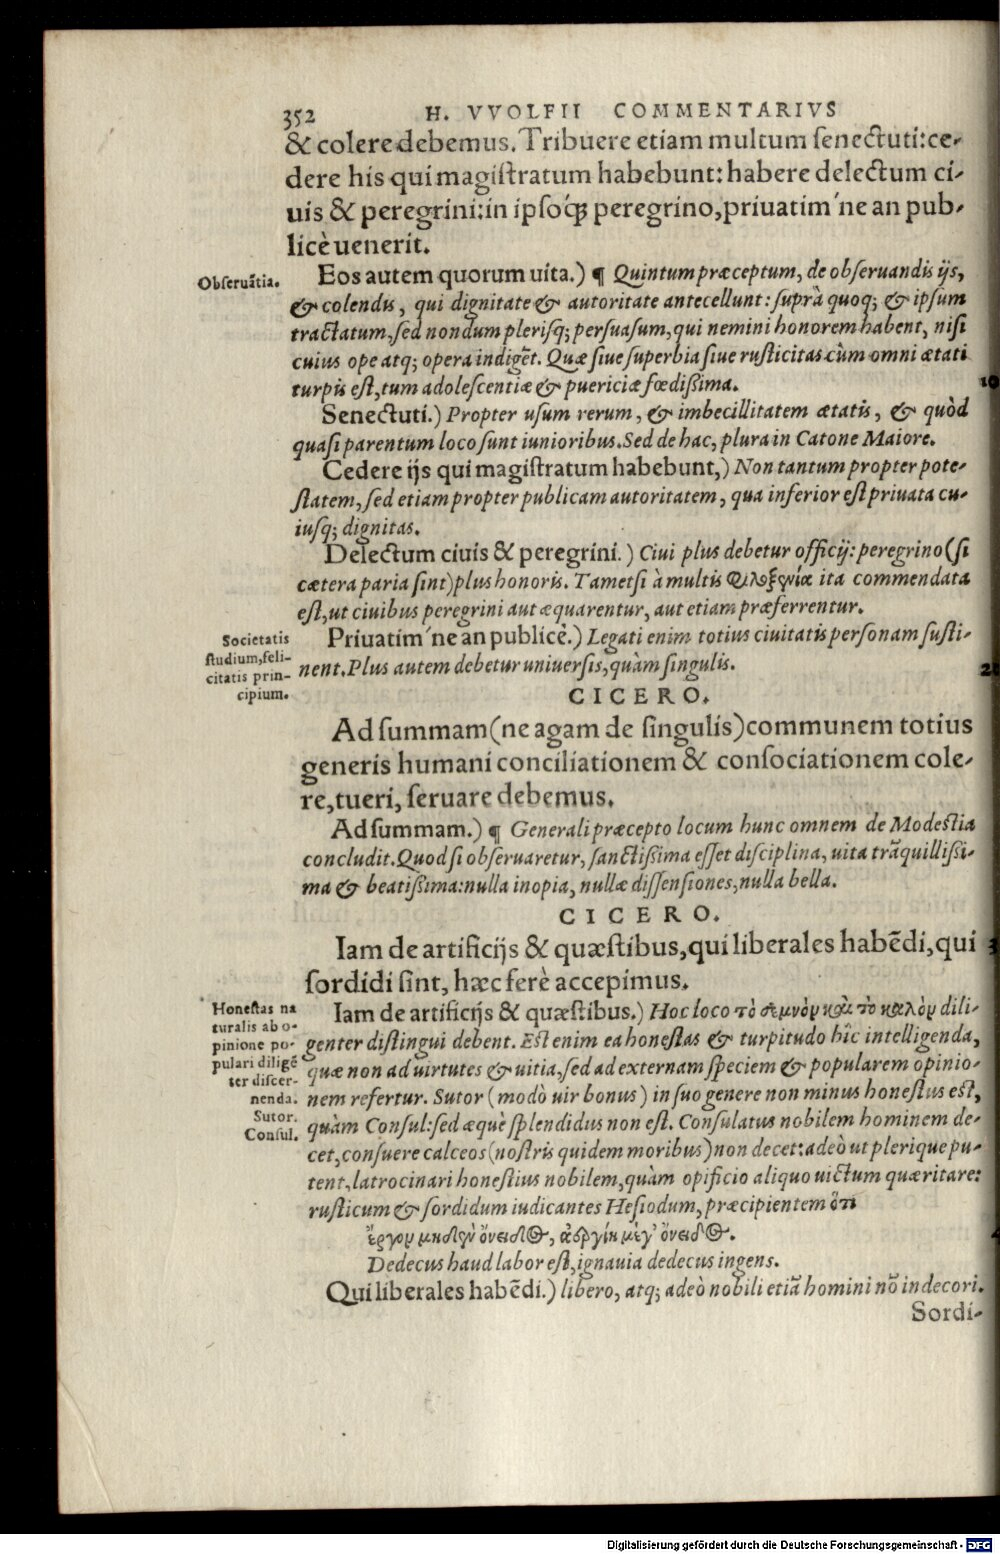 352 H. VVOLFII COMMENTARIVS
& colere debemus. Tribuere etiam multum ſenectuti: ce-
dere his qui magiſtratum habebunt: habere delectum ci-
uis & peregrini: in ipſoq́ꝫ peregrino, priuatim'ne an pub-
licè uenerit.
Obſeruãtia.
Eos autem quorum uita.) ¶ Quintum præceptum, de obſeruandis ijs,
& colendis, qui dignitate & autoritate antecellunt: ſuprà quoq; & ipſum
tractatum, ſed nondum pleriſq; perſuaſum, qui nemini honorem habent, niſi
cuius ope atq; opera indigẽt. Quæ ſiue ſuperbia ſiue ruſticitas cùm omni ætati
turpis eſt, tum adoleſcentiæ & puericiæ fœdißima.
10
Senectuti.) Propter uſum rerum, & imbecillitatem ætatis, & quòd
quaſi parentum loco ſunt iunioribus. Sed de hac, plura in Catone Maiore.
Cedere ijs qui magiſtratum habebunt,) Non tantum propter pote-
ſtatem, ſed etiam propter publicam autoritatem, qua inferior eſt priuata cu-
iuſq; dignitas.
Delectum ciuis & peregrini.) Ciui plus debetur officij: peregrino (ſi
cætera paria ſint) plus honoris. Tametſi à multis φιλοξενία ita commendata
eſt, ut ciuibus peregrini aut æquarentur, aut etiam præferrentur.
Societatis
ſtudium, feli-
citatis prin-
cipium.
Priuatim'ne an publicè.) Legati enim totius ciuitatis perſonam ſuſti-
nent. Plus autem debetur uniuerſis, quàm ſingulis.
CICERO.
Ad ſummam (ne agam de ſingulis) communem totius
generis humani conciliationem & conſociationem cole-
re, tueri, ſeruare debemus.
Ad ſummam.) ¶ Generali præcepto locum hunc omnem de Modeſtia
concludit. Quod ſi obſeruaretur, ſanctißima eſſet diſciplina, uita trãquillißi-
ma & beatißima: nulla inopia, nullæ diſſenſiones, nulla bella.
CICERO.
Iam de artificijs & quæſtibus, qui liberales habẽdi, qui
ſordidi ſint, hæc ferè accepimus.
Honeſtas na
turalis ab o-
pinione po-
pulari diligẽ
ter diſcer-
nenda.
Sutor.
Conſul.
Iam de artificijs & quæſtibus.) Hoc loco τὸ σεμνὸν καὶ τὸ καλὸν dili-
genter diſtingui debent. Eſt enim ea honeſtas & turpitudo hîc intelligenda,
quæ non ad uirtutes & uitia, ſed ad externam ſpeciem & popularem opinio-
nem refertur. Sutor (modò uir bonus) in ſuo genere non minus honeſtus eſt,
quàm Conſul: ſed æquè ſplendidus non eſt. Conſulatus nobilem hominem de-
cet, conſuere calceos (noſtris quidem moribus) non decet: adeò ut plerique pu-
tent, latrocinari honeſtius nobilem, quàm opificio aliquo uictum quæritare:
ruſticum & ſordidum iudicantes Heſiodum, præcipientem ὅτι
ἔργον μηδὲν ὄνειδος, ἀεργίη μέγ' ὄνειδος.
Dedecus haud labor eſt, ignauia dedecus ingens.
Qui liberales habẽdi.) libero, atq; adeò nobili etiã homini nõ indecori.
Sordi-
Digitalisierung gefördert durch die Deutsche Forschungsgemeinschaft - DFG